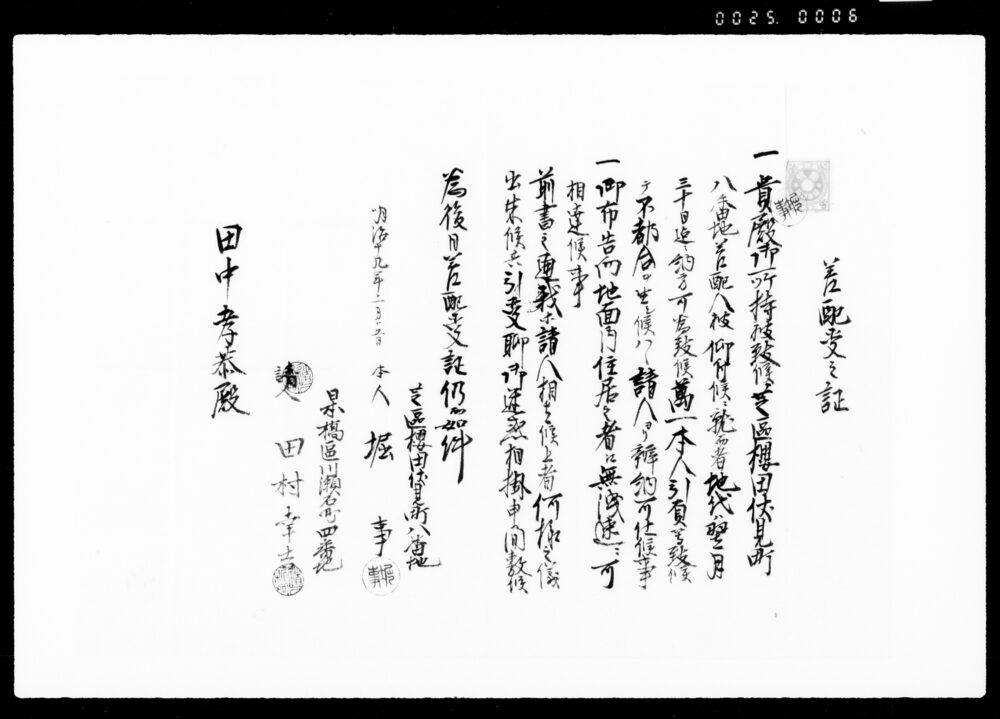 0025.0006
差配受之証
一 貴殿御所持被致候芝區櫻田伏見町
八番地差配人被仰付候就而者地代ハ翌月
三十日迄ニ納方可為致候萬一本人引負等致候
テ不都合出候ハヽ請人ヨリ辨納可仕候事
一 御布告向地面内住居之者江無洩速ニ可
相達候事
前書之通我等請人相立候上者何様之儀
出来候共引受聊御迷惑相掛申間敷候
為後日差配受証仍而如件
芝區櫻田伏見町八番地
明治十九年 本人 堀 事
橋區川瀬石町四番地
請人 田村幸
田中孝恭殿